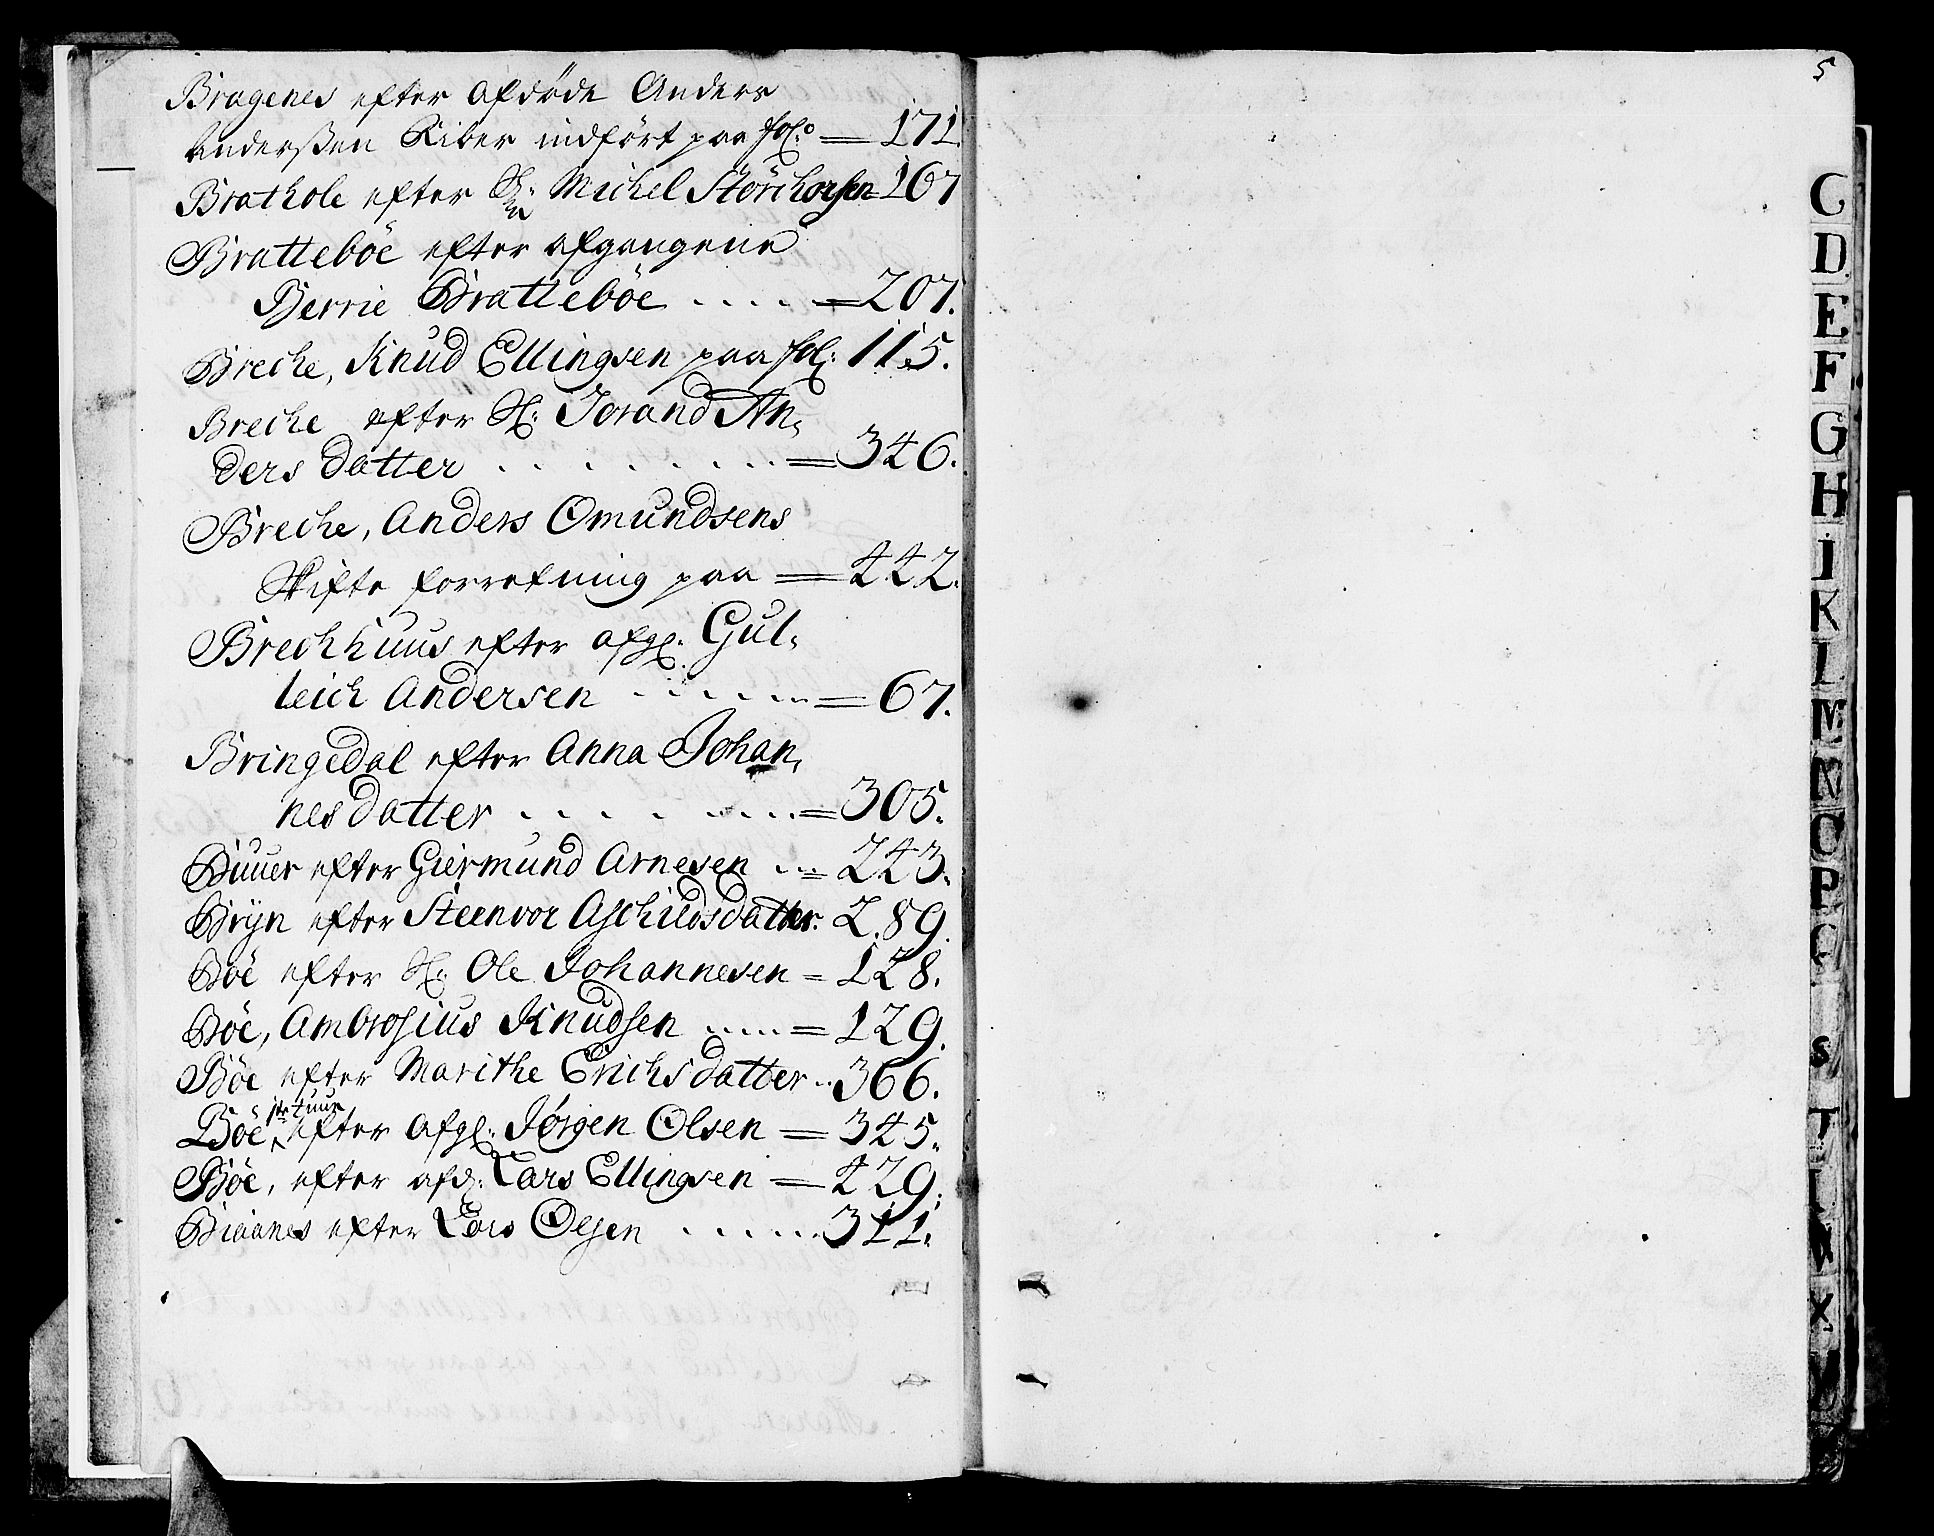 Bragenes efter afdøde Anders
Anderßen Riber indført paa fol:o = 171.
Brathole efter Sl: Michel Störchorsen = 167
Bratteböe efter afgangene
Berrie Bratteböe ..... = 207.
Breche, Knud Ellingsen paa fol: 115.
Breche efter Sl: Jorand An,
ders datter ........ = 346.
Breche, Anders Omundsens
Skifte forretning paa = 442.
Brechhuus efter afgl: Gul,
leich Andersen ...... = 67.
Bringedal efter Anna Johan,
nes datter ....... = 305.
Buuer efter Giermund Arnesen ... = 223.
Bryn efter Steenvor Aschildsdatter. 289.
Böe efter Sl: Ole Johannesen = 128.
Böe, Ambrosius Knudsen ..... = 129.
Böe efter Marithe Erichsdatter .. 366.
Böe efter afgl: Jørgen Olsen = 345.
Böe, efter afd: Lars Ellingsen = 229.
efter Lars Olsen ...... 311.
5
C
D
E
F
G
H
I
K
L
M
N
O
P
S
T
X